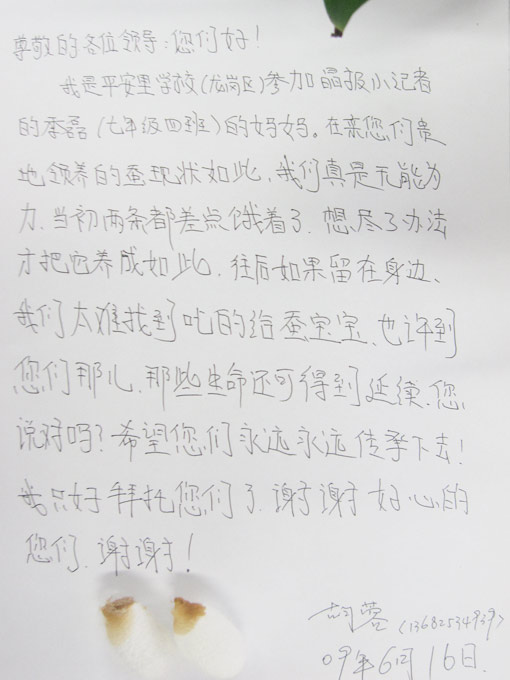 尊敬的各位领导:您们好!
我是平安里学校(龙岗区)参加晶报小记者
的季磊(七年级四班)的妈妈。在亲您们贵
地领养的蚕现状如此,我们真是无能为
力.当初两条都差点饿着了.想尽了办法
才把它养成如此.往后如果留在身边、
我们太难找到吃的给蚕宝宝、也许到
您们那儿.那些生命还可得到延续.您
说对吗?希望您们永远永远传承下去!
我只好拜托您们了.谢谢好心的
您们.谢谢!
胡蓉(13682534939)
09年6月16日.